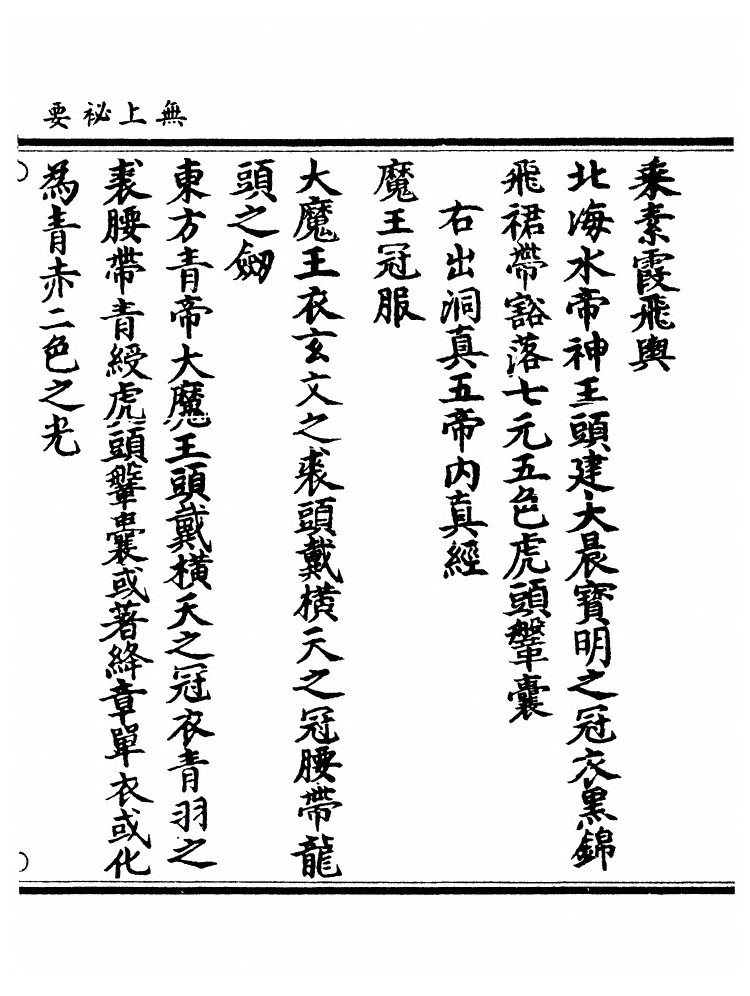 無上祕要
乘素霞飛輿
北海水帝神王頭建大晨寳明之冠衣黒錦
飛裙帶豁落七元五色虎頭鞶囊
右出洞真五帝内真經
魔王冠服
大魔王衣玄文之裘頭戴横天之冠腰帶龍
頭之劒
東方青帝大魔王頭戴横天之冠衣青羽之
裘腰帶青綬虎頭鞶囊或著絳章單衣或化
為青赤二色之光